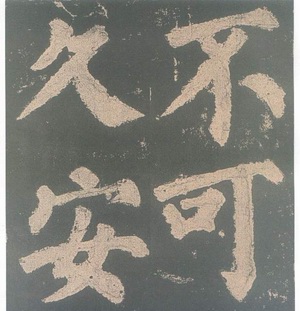 不可
久安